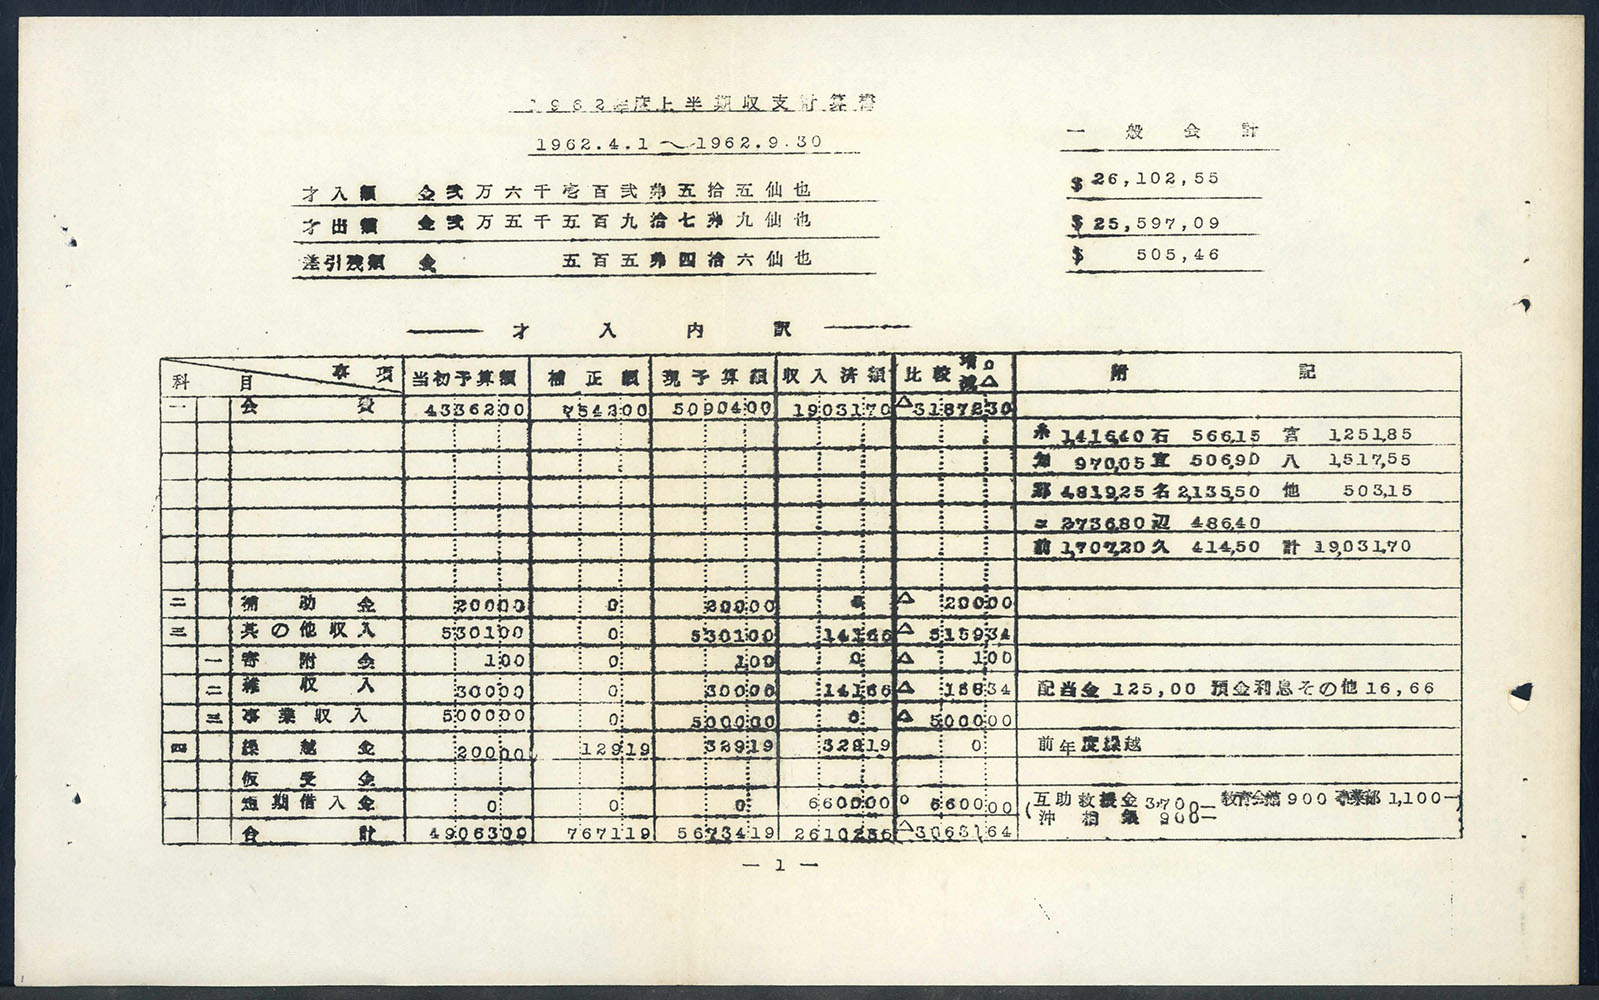 1962年度上半期収支計算書
1962.4.1〜1962.9.30
一般会計
才入額 金弐万六千壱百弐弗五拾五仙也 $26,102,55
才出額 金弐万五千五百九拾七弗九仙也 $25,597,09
差引残額 金 五百五弗四拾六仙也 $505,46
才入内訳
科目 事項 当初予算額 補正額 現予算額 収入済額 比較増○減△ 附記
一 会費 4336200 754200 5090400 1903170 △3187230
糸 1,416,40 石 566,15 宮 1,251,85
知 970,05 宜 506,90 八 1,517,55
那 4,819,25 名 2,135,50 他 503,15
コ 2,736,80 辺 486,40
前 1,707,20 久 414,50 計 19,031,70
二 補助金 20000 0 20000 △ 20000
三 其の他収入 530100 0 530100 14166 △ 515934
一 寄附金 100 0 100 0 △ 100
二 雑収入 30000 0 30000 14166 △ 15834
配当金 125,00 預金利息その他 16,66
三 事業収入 500000 0 500000 0 △ 500000
四 繰越金 20000 12919 32919 32919 0 前年度繰越
仮受金
短期借入金 0 0 0 660000 ○ 660000
(互助救援金 3,700— 教育会館 900 事業部 1,100—)
沖相銀 900—
合計 4906300 767119 5673419 2610255 △3063164
— 1 —